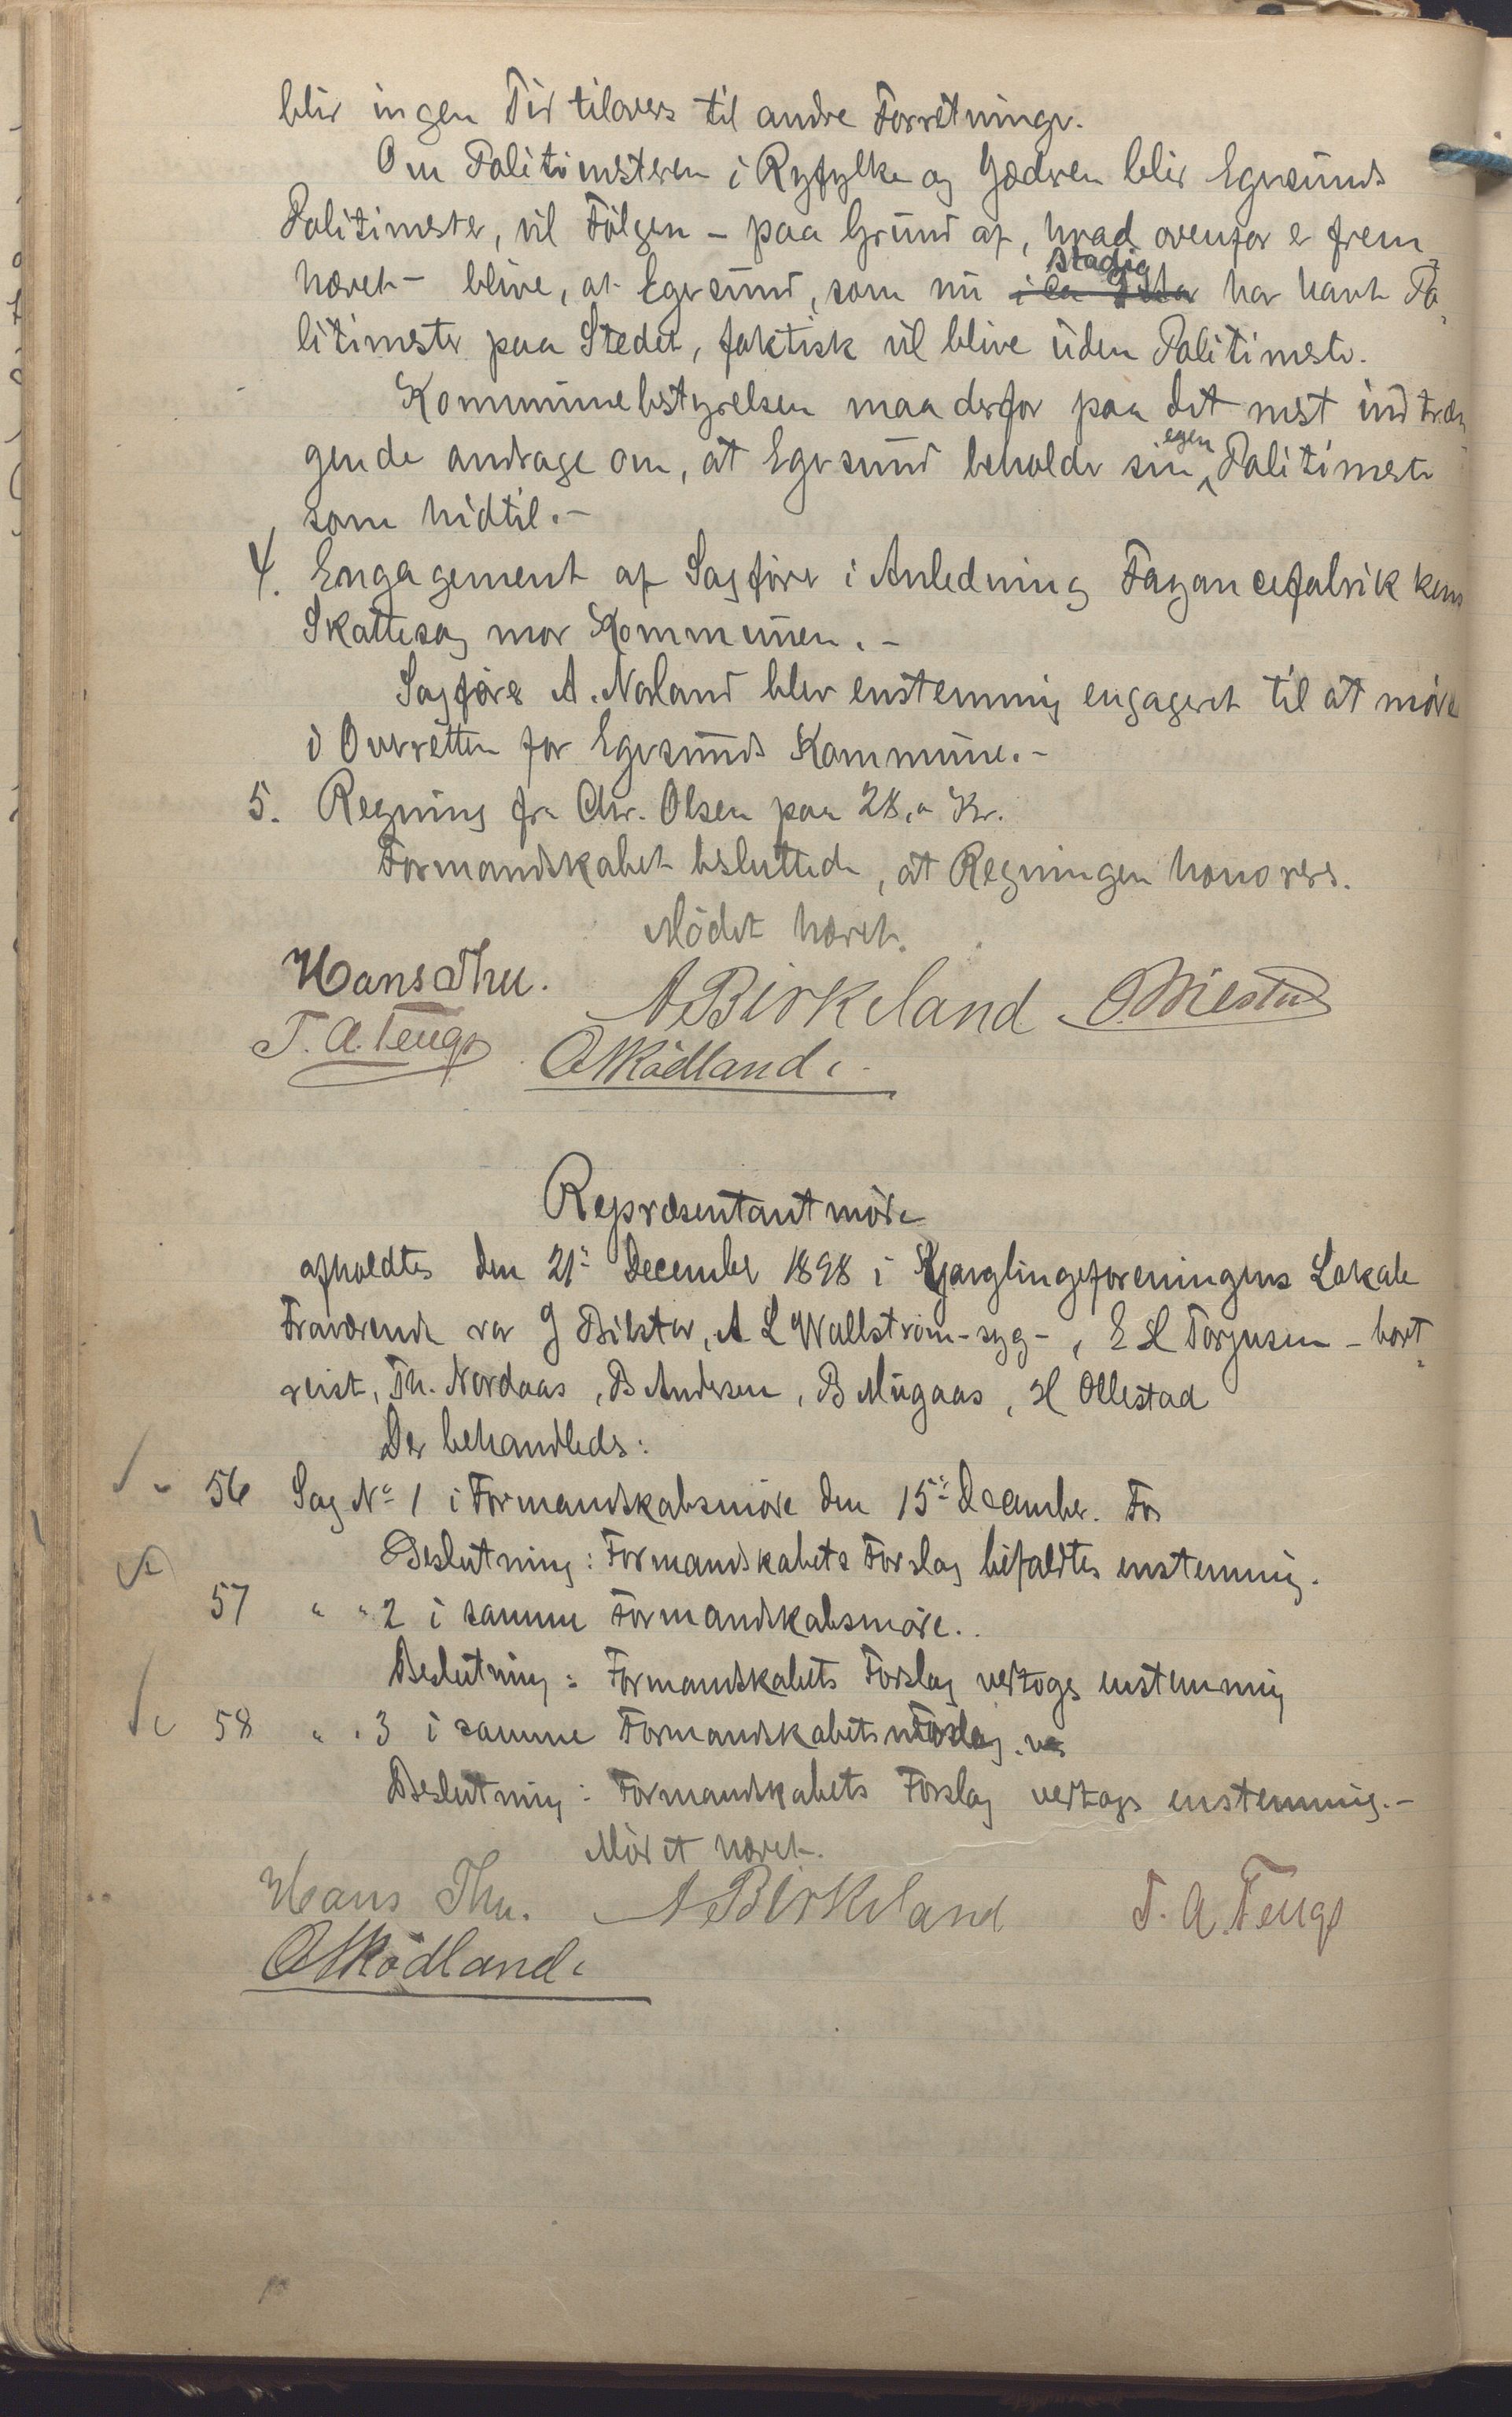 blir ingen Tid tilovers til andre Forretninger.
Om Politimesteren i Ryfylke og Jæderen blir Egersunds
Politimester, vil Følgen – paa Grund af, hvad ovenfor er frem-
hævet – blive, at Egersund, som nu stadig har havt Po-
litimester paa Stedet, faktisk vil blive uden Politimester.
Kommunebestyrelsen maa derfor paa det mest indtræn
gende andrage om, at Egersund beholder sin egen Politimester
som hidtil. –
4. Engagement af Sagfører i Anledning Fayancefabrikkens
Skattesag mod Kommunen. –
Sagfører A. Noland blev enstemmig engageret til at møde
i Overretten for Egersunds Kommune. –
5. Regning fra Chr. Olsen paa 28,- Kr.
Formandskabet besluttede, at Regningen honoreres.
Mødet hævet.
Hans Thu. A Birkeland
T. A. Tengs O M Rødland.
Repræsentantmøde
afholdtes den 21de December 1898 i Ynglingeforeningens Lokale
Fraværende var J Bilstad, A L Wallstrøm – syg –, E H Torjusen – bort-
reist, Th. Nordaas, B Andersen, B Mugaas, H Ollestad
Der behandledes:
56 Sag No 1 i Formandskabsmøde den 15de December. For
Beslutning: Formandskabets Forslag bifaldtes enstemmig.
57 " " 2 i samme Formandskabsmøde.
Beslutning: Formandskabets Forslag vedtoges enstemmig
58 " " 3 i samme Formandskabets Forslag
Beslutning: Formandskabets Forslag vedtoges enstemmig. –
Mødet hævet.
Hans Thu. A Birkeland T. A. Tengs
O M Rødland.